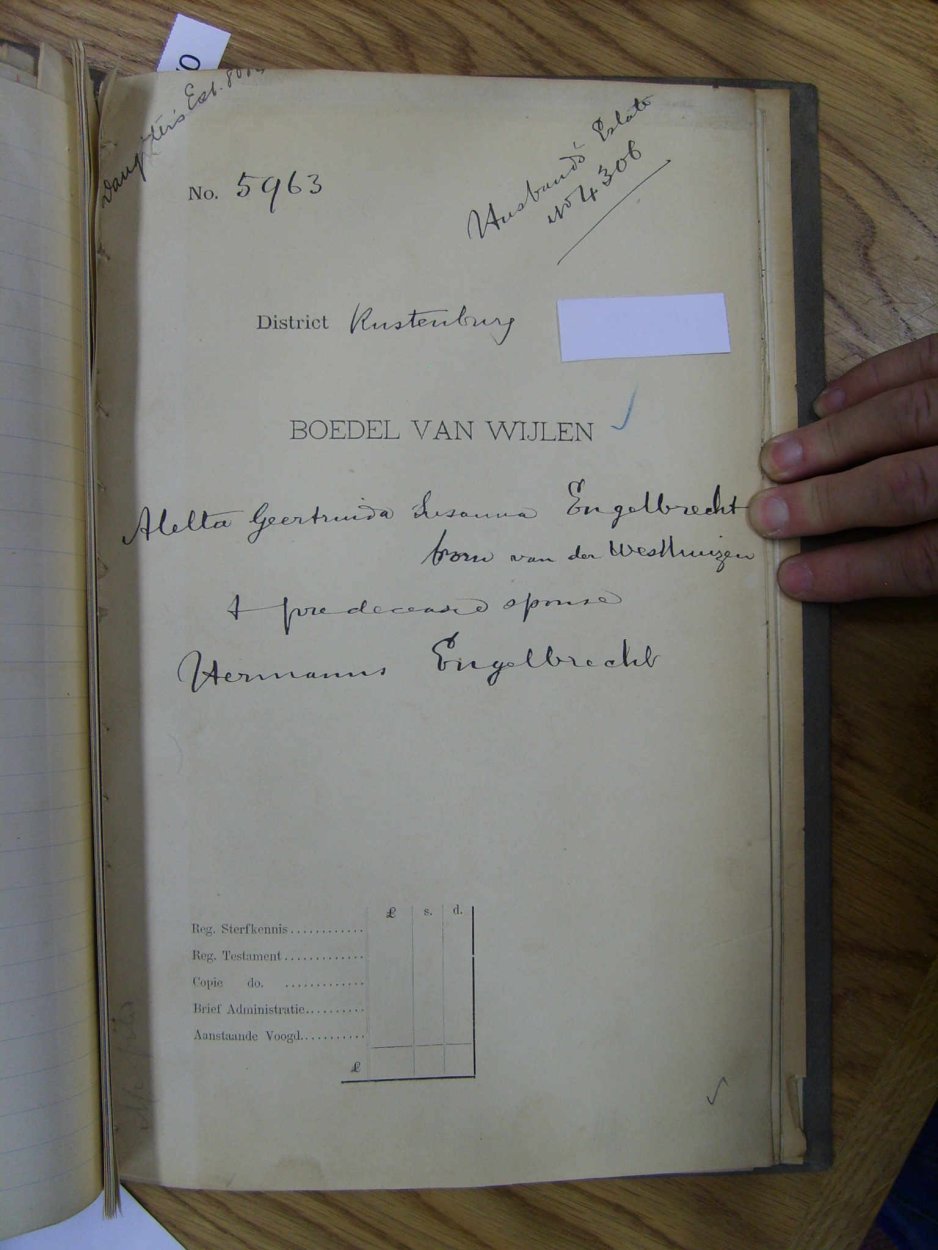 Daughter's Est.
Husband's Estate
No 4306
No. 5963
District Rustenburg
BOEDEL VAN WIJLEN
Aletta Geertruida Susanna Engelbrecht
born van der Westhuizen
& predeceased spouse
Hermanus Engelbrecht
£ s. d.
Reg. Sterfkennis............
Reg. Testament.............
Copie do. .............
Brief Administratie.........
Aanstaande Voogd..........
£